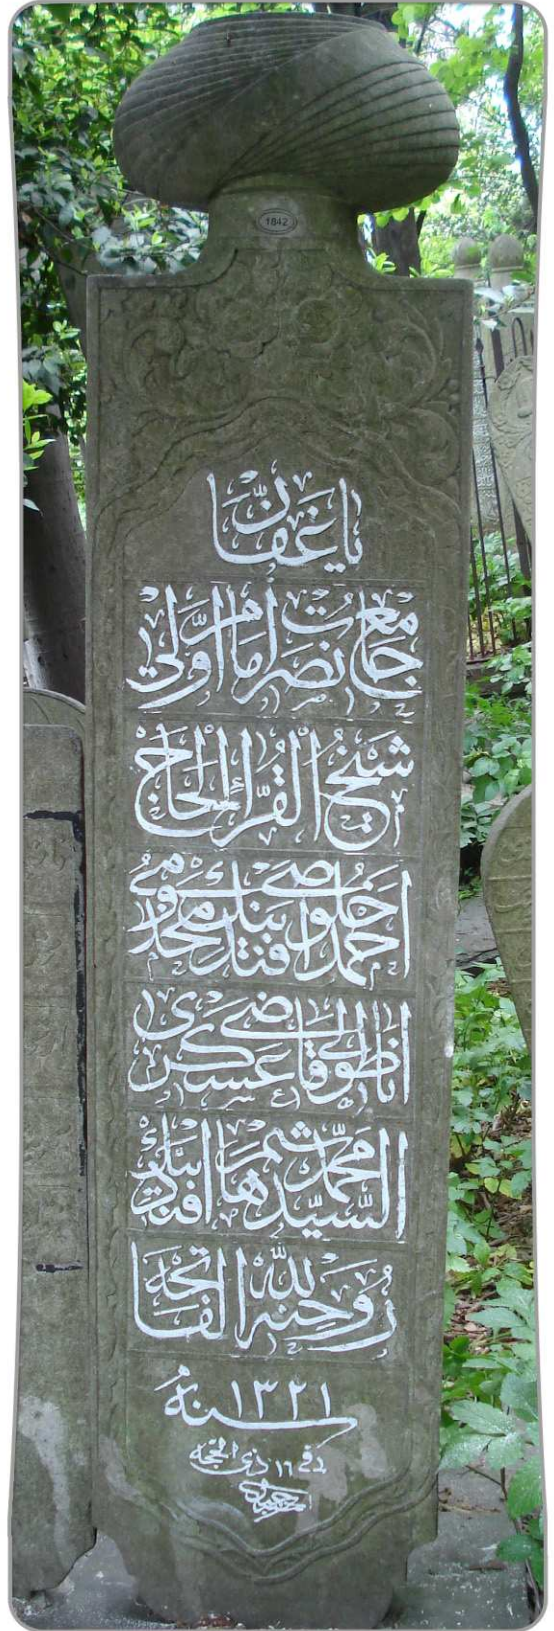 1842
يا غفار
جامع نصرت امام اولى
شيخ القراء الحاج
احمد خلوصى افندينك مخدومى
اناطولى قاضيعسكرى
السيد محمد افندينك
روحنه لله الفاتحه
سنه ١٣٢١
فى ١٦ ذى الحجه